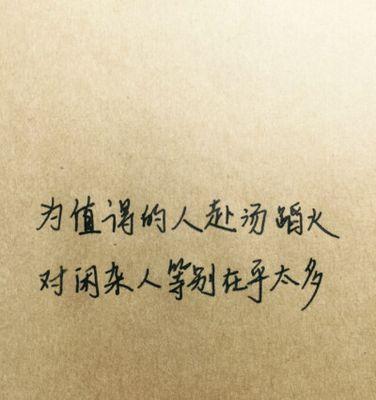 为值得的人赴汤蹈火
对闲杂人等别在乎太多